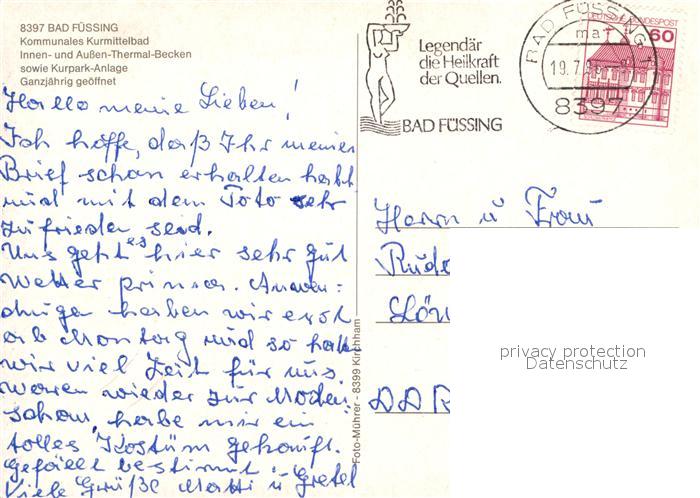 8397 BAD FÜSSING
Kommunales Kurmittelbad
Innen- und Außen-Thermal-Becken
sowie Kurpark-Anlage
Ganzjährig geöffnet
Hallo meine Lieben!
Ich hoffe, daß Ihr meinen
Brief schon erhalten habt
und mit dem Foto sehr
zufrieden seid.
Uns geht es hier sehr gut
Wetter prima. Anwen-
dungen haben wir erst
ab Montag und so haben
wir viel Zeit für uns.
Waren wieder zur Moden-
schau, habe mir ein
tolles Kostüm gekauft.
Gefällt bestimmt
Viele Grüße Matti u Gretel
Foto-Mührer - 8399 Kirchham
Legendär
die Heilkraft
der Quellen.
BAD FÜSSING
BAD FÜSSING 1
ma
19.7.
8397
DEUTSCHE BUNDESPOST
60
Herrn u Frau
Rude
Lön
DDR
privacy protection
Datenschutz